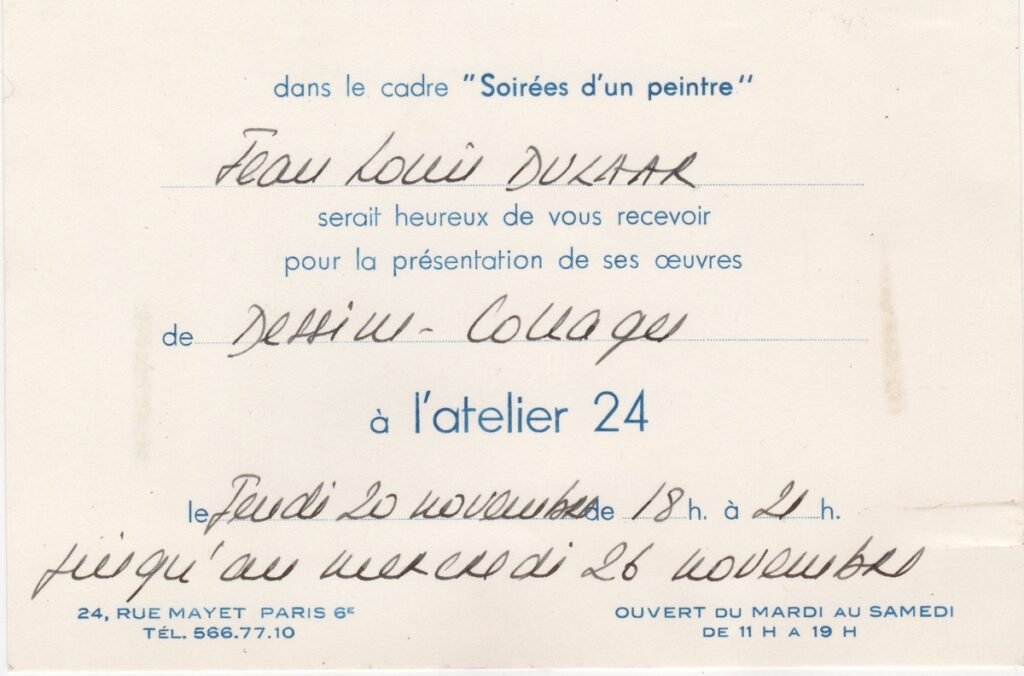 dans le cadre "Soirées d'un peintre"
Jean Louis DULAAR
serait heureux de vous recevoir
pour la présentation de ses œuvres
de Dessins - Collages
à l'atelier 24
le Jeudi 20 novembre de 18 h. à 21 h.
jusqu'au mercredi 26 novembre
24, RUE MAYET PARIS 6E
TÉL. 566.77.10
OUVERT DU MARDI AU SAMEDI
DE 11 H A 19 H